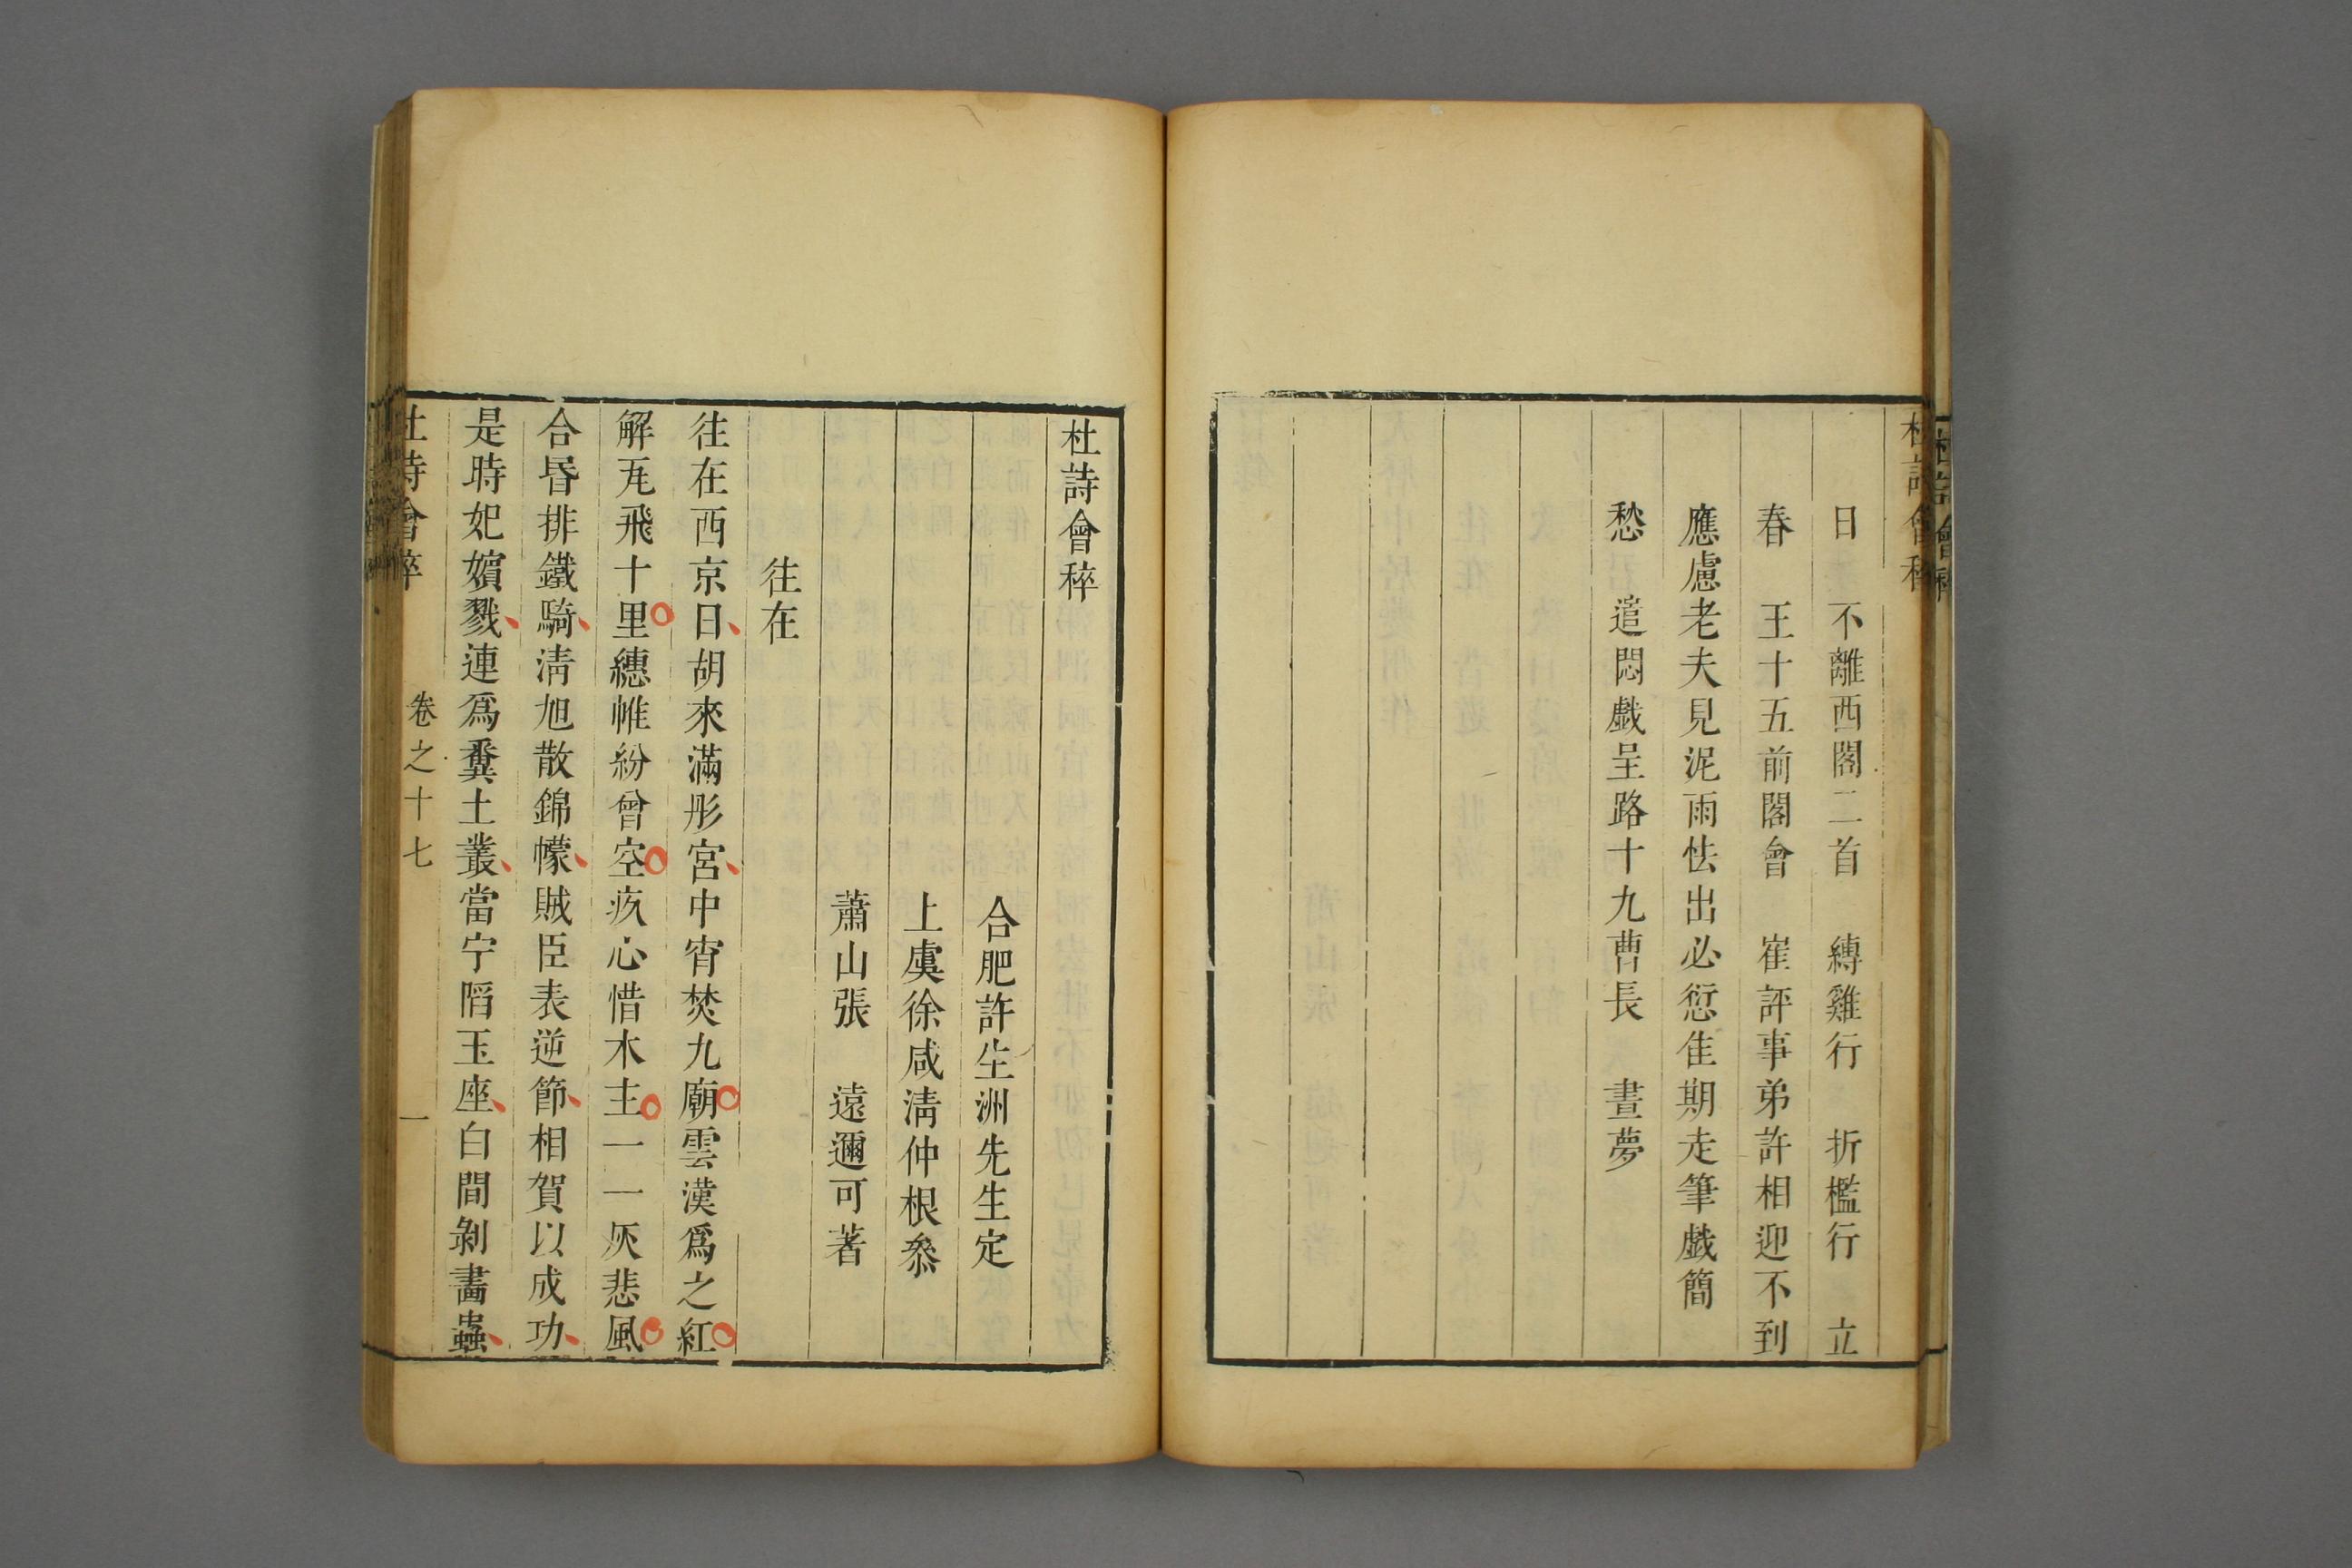 杜詩會稡
日　不離西閣二首　縛雞行　折檻行　立
春　王十五前閣會　崔評事弟許相迎不到
應慮老夫見泥雨怯出必愆佳期走筆戲簡
愁　遣悶戲呈路十九曹長　晝夢
杜詩會稡
合肥許生洲先生定
上虞徐咸淸仲根叅
蕭山張　遠邇可著
往在
往在西京日胡來滿彤宮中宵焚九廟雲漢爲之紅
解瓦飛十里繐帷紛曾空疚心惜木主一一灰悲風
合昏排鐵騎淸旭散錦幪賊臣表逆節相賀以成功
是時妃嬪戮連爲糞土叢當宁陷玉座白間剝畫蟲
杜詩會稡　卷之十七　一